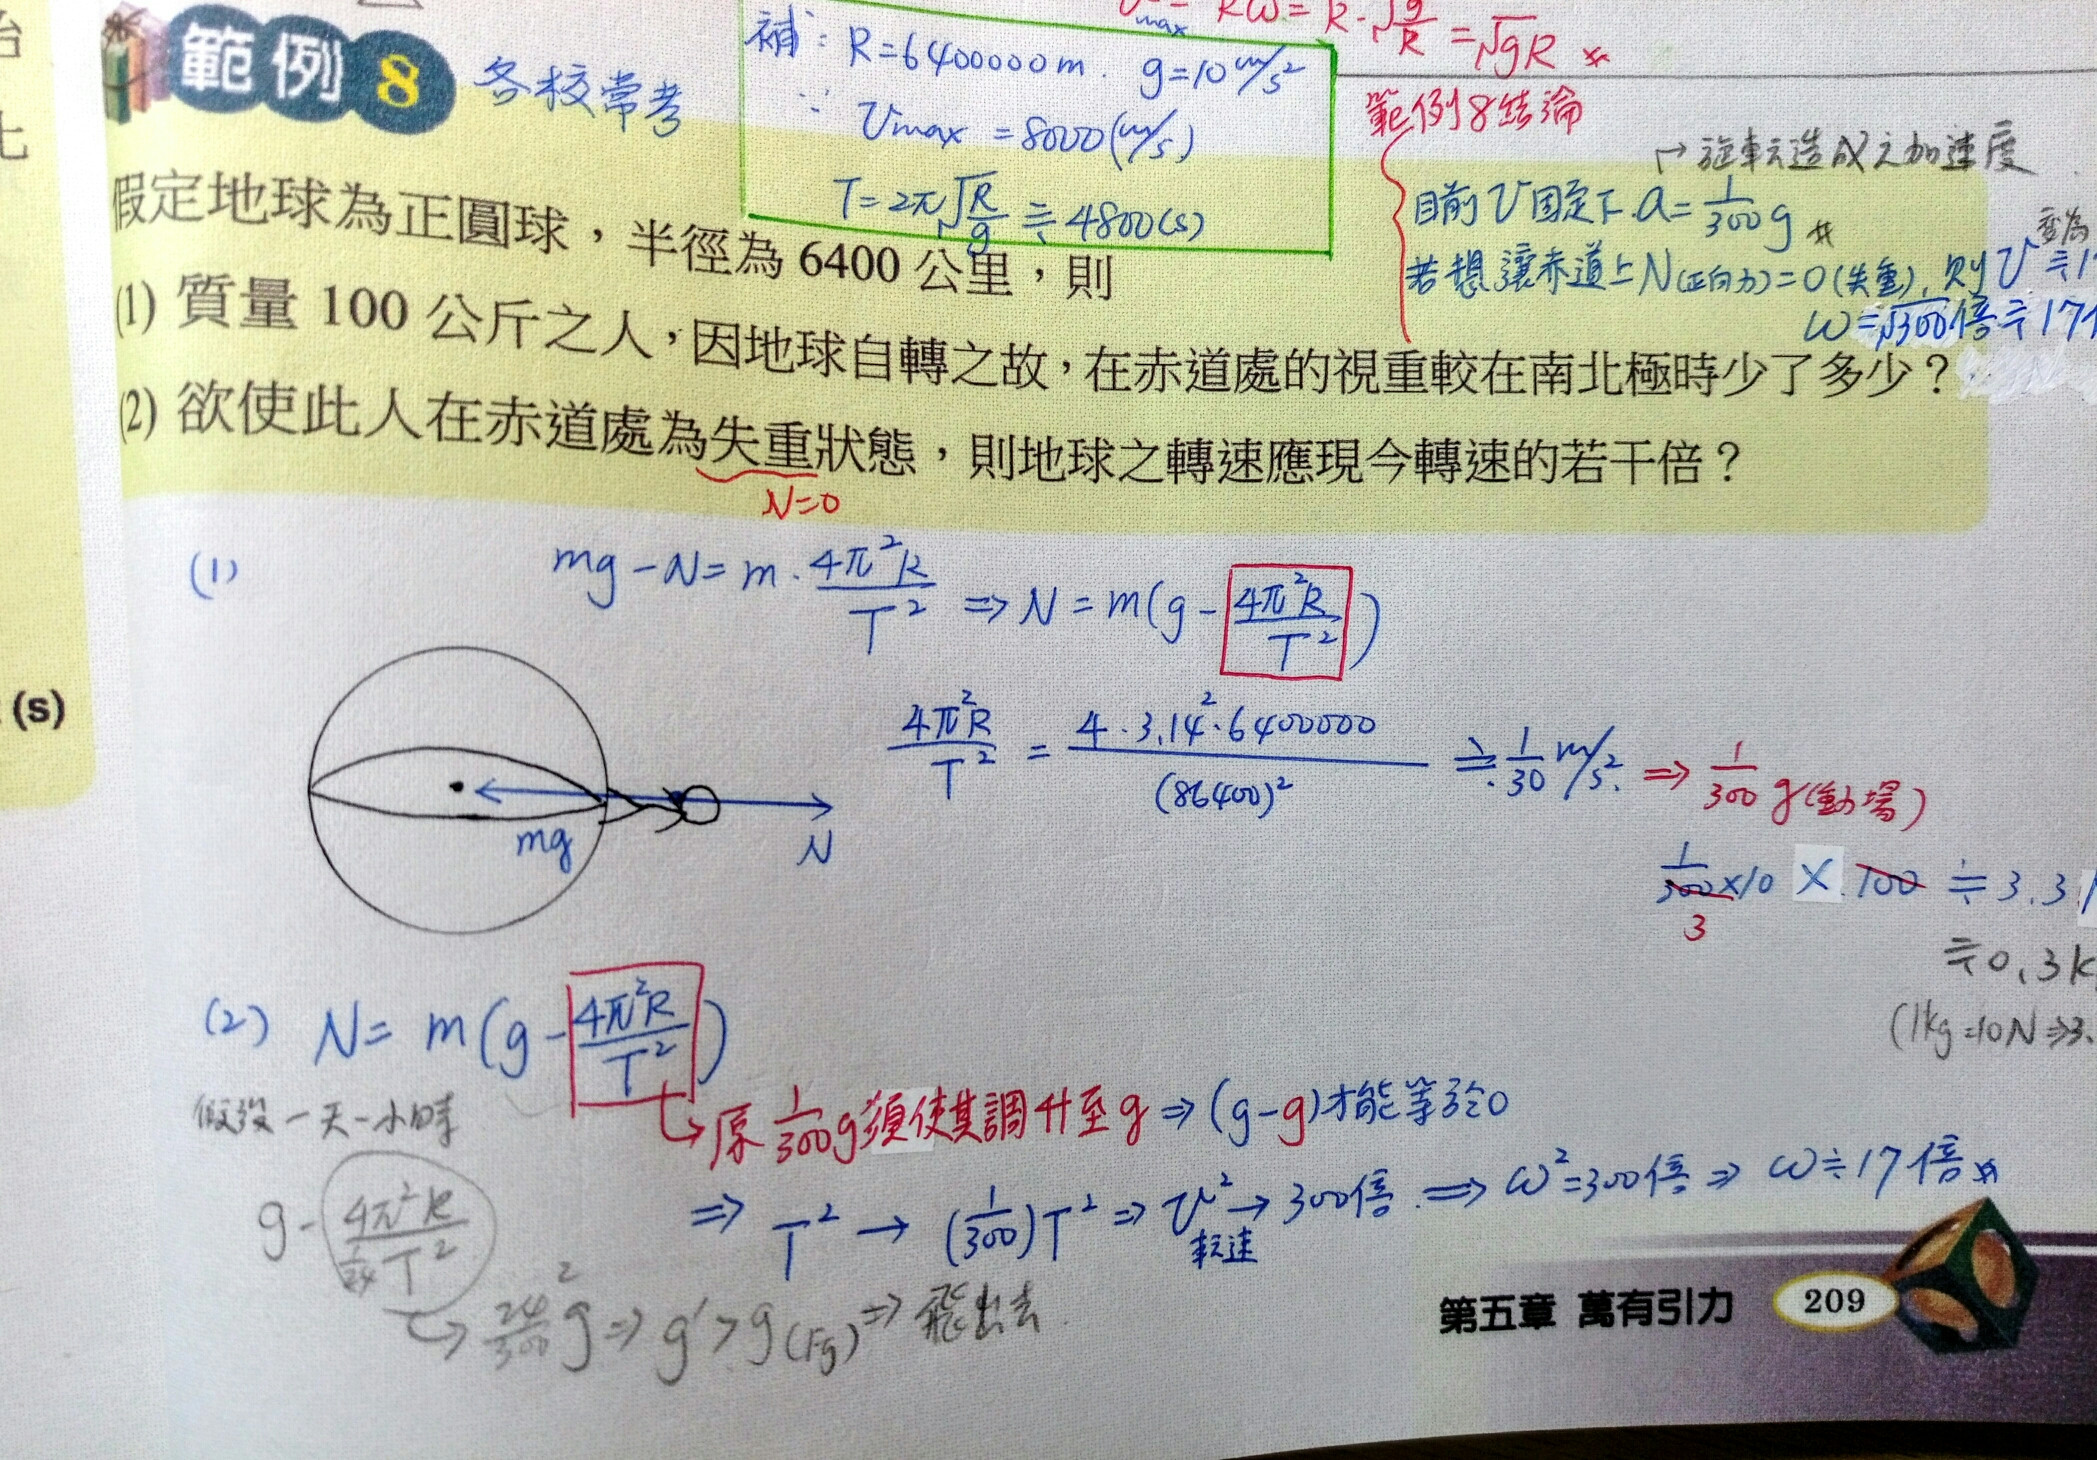 範例 8 各校常考
補：R=6400000m. g=10 m/s²
∵ Vmax = 8000 (m/s)
T=2π√(R/g) ≒ 4800(s)
max = Rω = R·√(g/R) = √gR
範例8結論
→ 旋転造成之加速度
目前V固定下 a= 1/300 g
若想讓赤道上N(正向力)=0(失重), 則V 變為 ≒1
ω=√300倍≒17
假定地球為正圓球，半徑為 6400 公里，則
(1) 質量 100 公斤之人，因地球自轉之故，在赤道處的視重較在南北極時少了多少？
(2) 欲使此人在赤道處為失重狀態，則地球之轉速應現今轉速的若干倍？
N=0
(1) mg-N= m·4π²R/T² ⇒ N = m(g-4π²R/T²)
(s)
4π²R/T² = 4·3.14²·6400000/(86400)² ≒ 1/30 m/s². ⇒ 1/300 g(動場)
mg
N
1/300 ×10 × 100 ≒ 3.3
3
≒0.3k
(1kg=10N⇒3.
(2) N= m(g-4π²R/T²)
假設一天一小時
原 1/300 g須使其調升至g ⇒ (g-g)才能等於0
⇒ T² → (1/300)T² ⇒ V² → 300倍 ⇒ ω²=300倍 ⇒ ω≒17倍
転速
g- 4π²R/(1/24 T²)
→ 24²/300 g ⇒ g' > g (Fg) ⇒ 飛出去
第五章 萬有引力 209